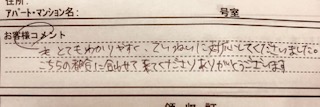 住所:
アパート・マンション名: 号室
お客様コメント
とてもわかりやすく、ていねいに対応してくださいました。
こちらの都合に合わせて来てくださりありがとうございます
領収証